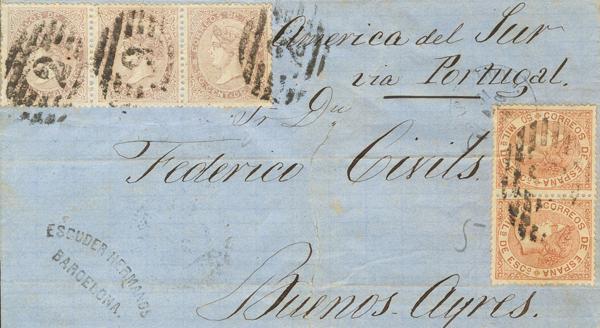 America del Sur
via Portugal.
Sr. Dn
Federico Civils.
Buenos-Ayres.
ESCUDER HERMANOS
BARCELONA.
5
CORREOS DE ESPAÑA
50 MILs DE ESCo
CORREOS DE ESPAÑA
MILs DE ESCo